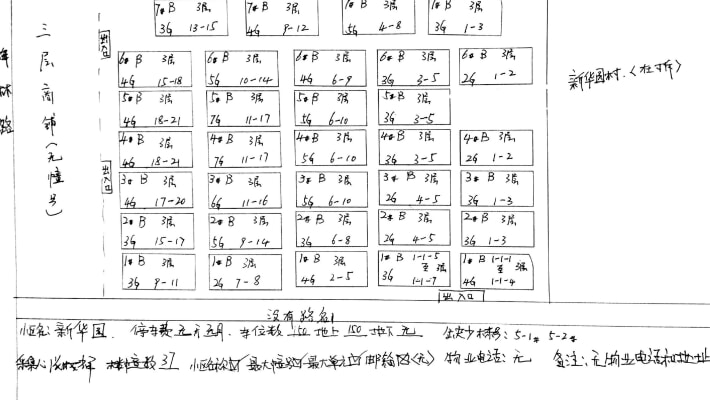 7# B 3层 7# B 3层 1# B 层 1# B 3层
3G 13-15 4G 9-12 5G 4-8 3G 1-3
出入口
三层商铺(无幢号)
6# B 3层 6# B 3层 6# B 3层 6# B 3层 6# B 3层
4G 15-18 5G 10-14 4G 6-9 3G 3-5 2G 1-2
5# B 3层 5# B 3层 5# B 3层 5# B 3层
4G 18-21 7G 11-17 5G 6-10 3G 3-5
4# B 3层 4# B 3层 4# B 3层 4# B 3层 4# B 3层
4G 18-21 7G 11-17 5G 6-10 3G 3-5 2G 1-2
出入口
3# B 3层 3# B 3层 3# B 3层 3# B 3层 3# B 3层
4G 17-20 6G 11-16 5G 6-10 2G 4-5 3G 1-3
2# B 3层 2# B 3层 2# B 3层 2# B 3层 2# B 3层
3G 15-17 5G 9-14 3G 6-8 2G 4-5 3G 1-3
1# B 3层 1# B 3层 1# B 3层 1# B 1-1-5 至 3层 1# B 1-1-1 至 3层
3G 9-11 2G 7-8 4G 2-5 3G 1-1-7 4G 1-1-4
出入口
新华园村
林路
没有路名
小区名:新华园 停车费 元 车位数 150 地上 150 地下 无 缺少楼号:5-1# 5-2#
楼幢数 37 最大幢 最大单元 邮箱 (无) 物业电话:无 备注:无物业电话和地址